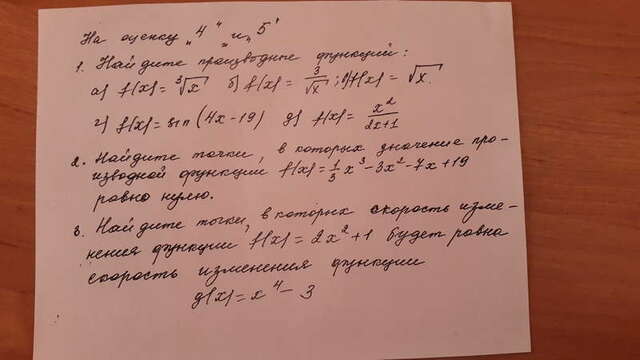 На оценку „4" и „5"
1. Найдите производные функций:
а) f(x) = ∛x б) f(x) = 3/√x; в) f(x) = √x.
г) f(x) = sin (4x - 19) д) f(x) = x²/(2x+1)
2. Найдите точки, в которых значение про-
изводной функции f(x) = ⅓x³ - 3x² - 4x + 19
равно нулю.
3. Найдите точки, в которых скорость изме-
нения функции f(x) = 2x² + 1 будет равна
скорость изменения функции
g(x) = x⁴ - 3